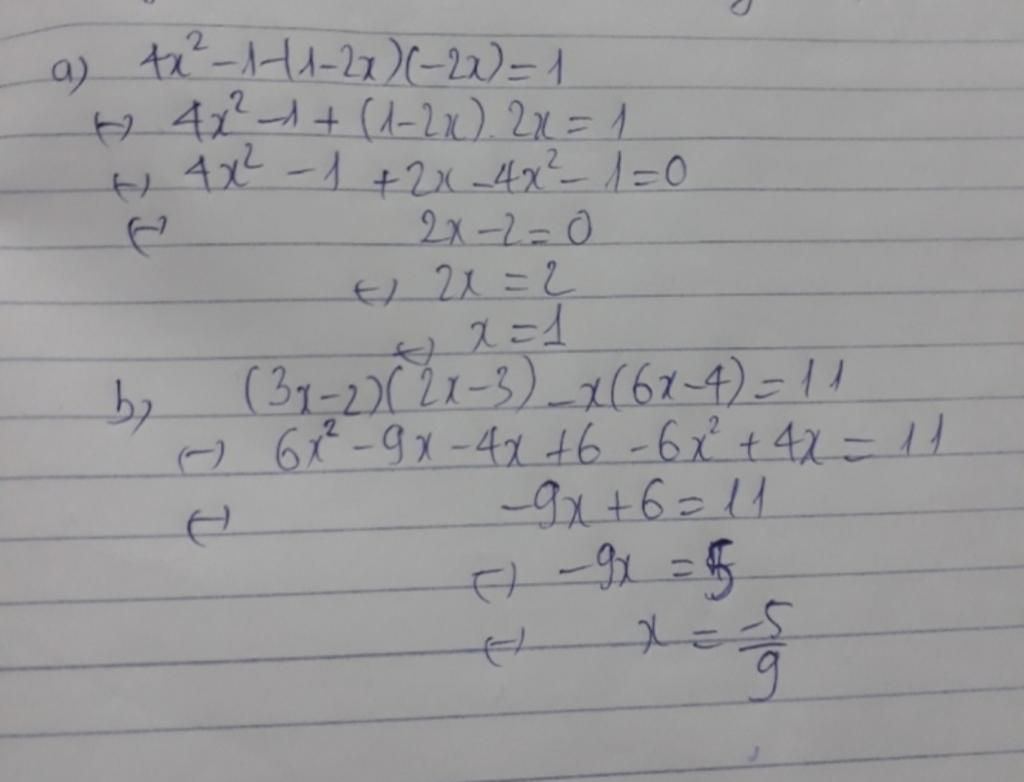 a) 4x² -1-(1-2x)(-2x)=1
↔ 4x² -1 + (1-2x). 2x = 1
↔ 4x² - 1 +2x -4x² - 1=0
↔ 2x-2=0
↔ 2x = 2
↔ x=1
b) (3x-2)(2x-3) -x(6x-4)=11
↔ 6x² -9x -4x +6 -6x² +4x = 11
↔ -9x+6=11
↔ -9x =5
↔ x = -5/9